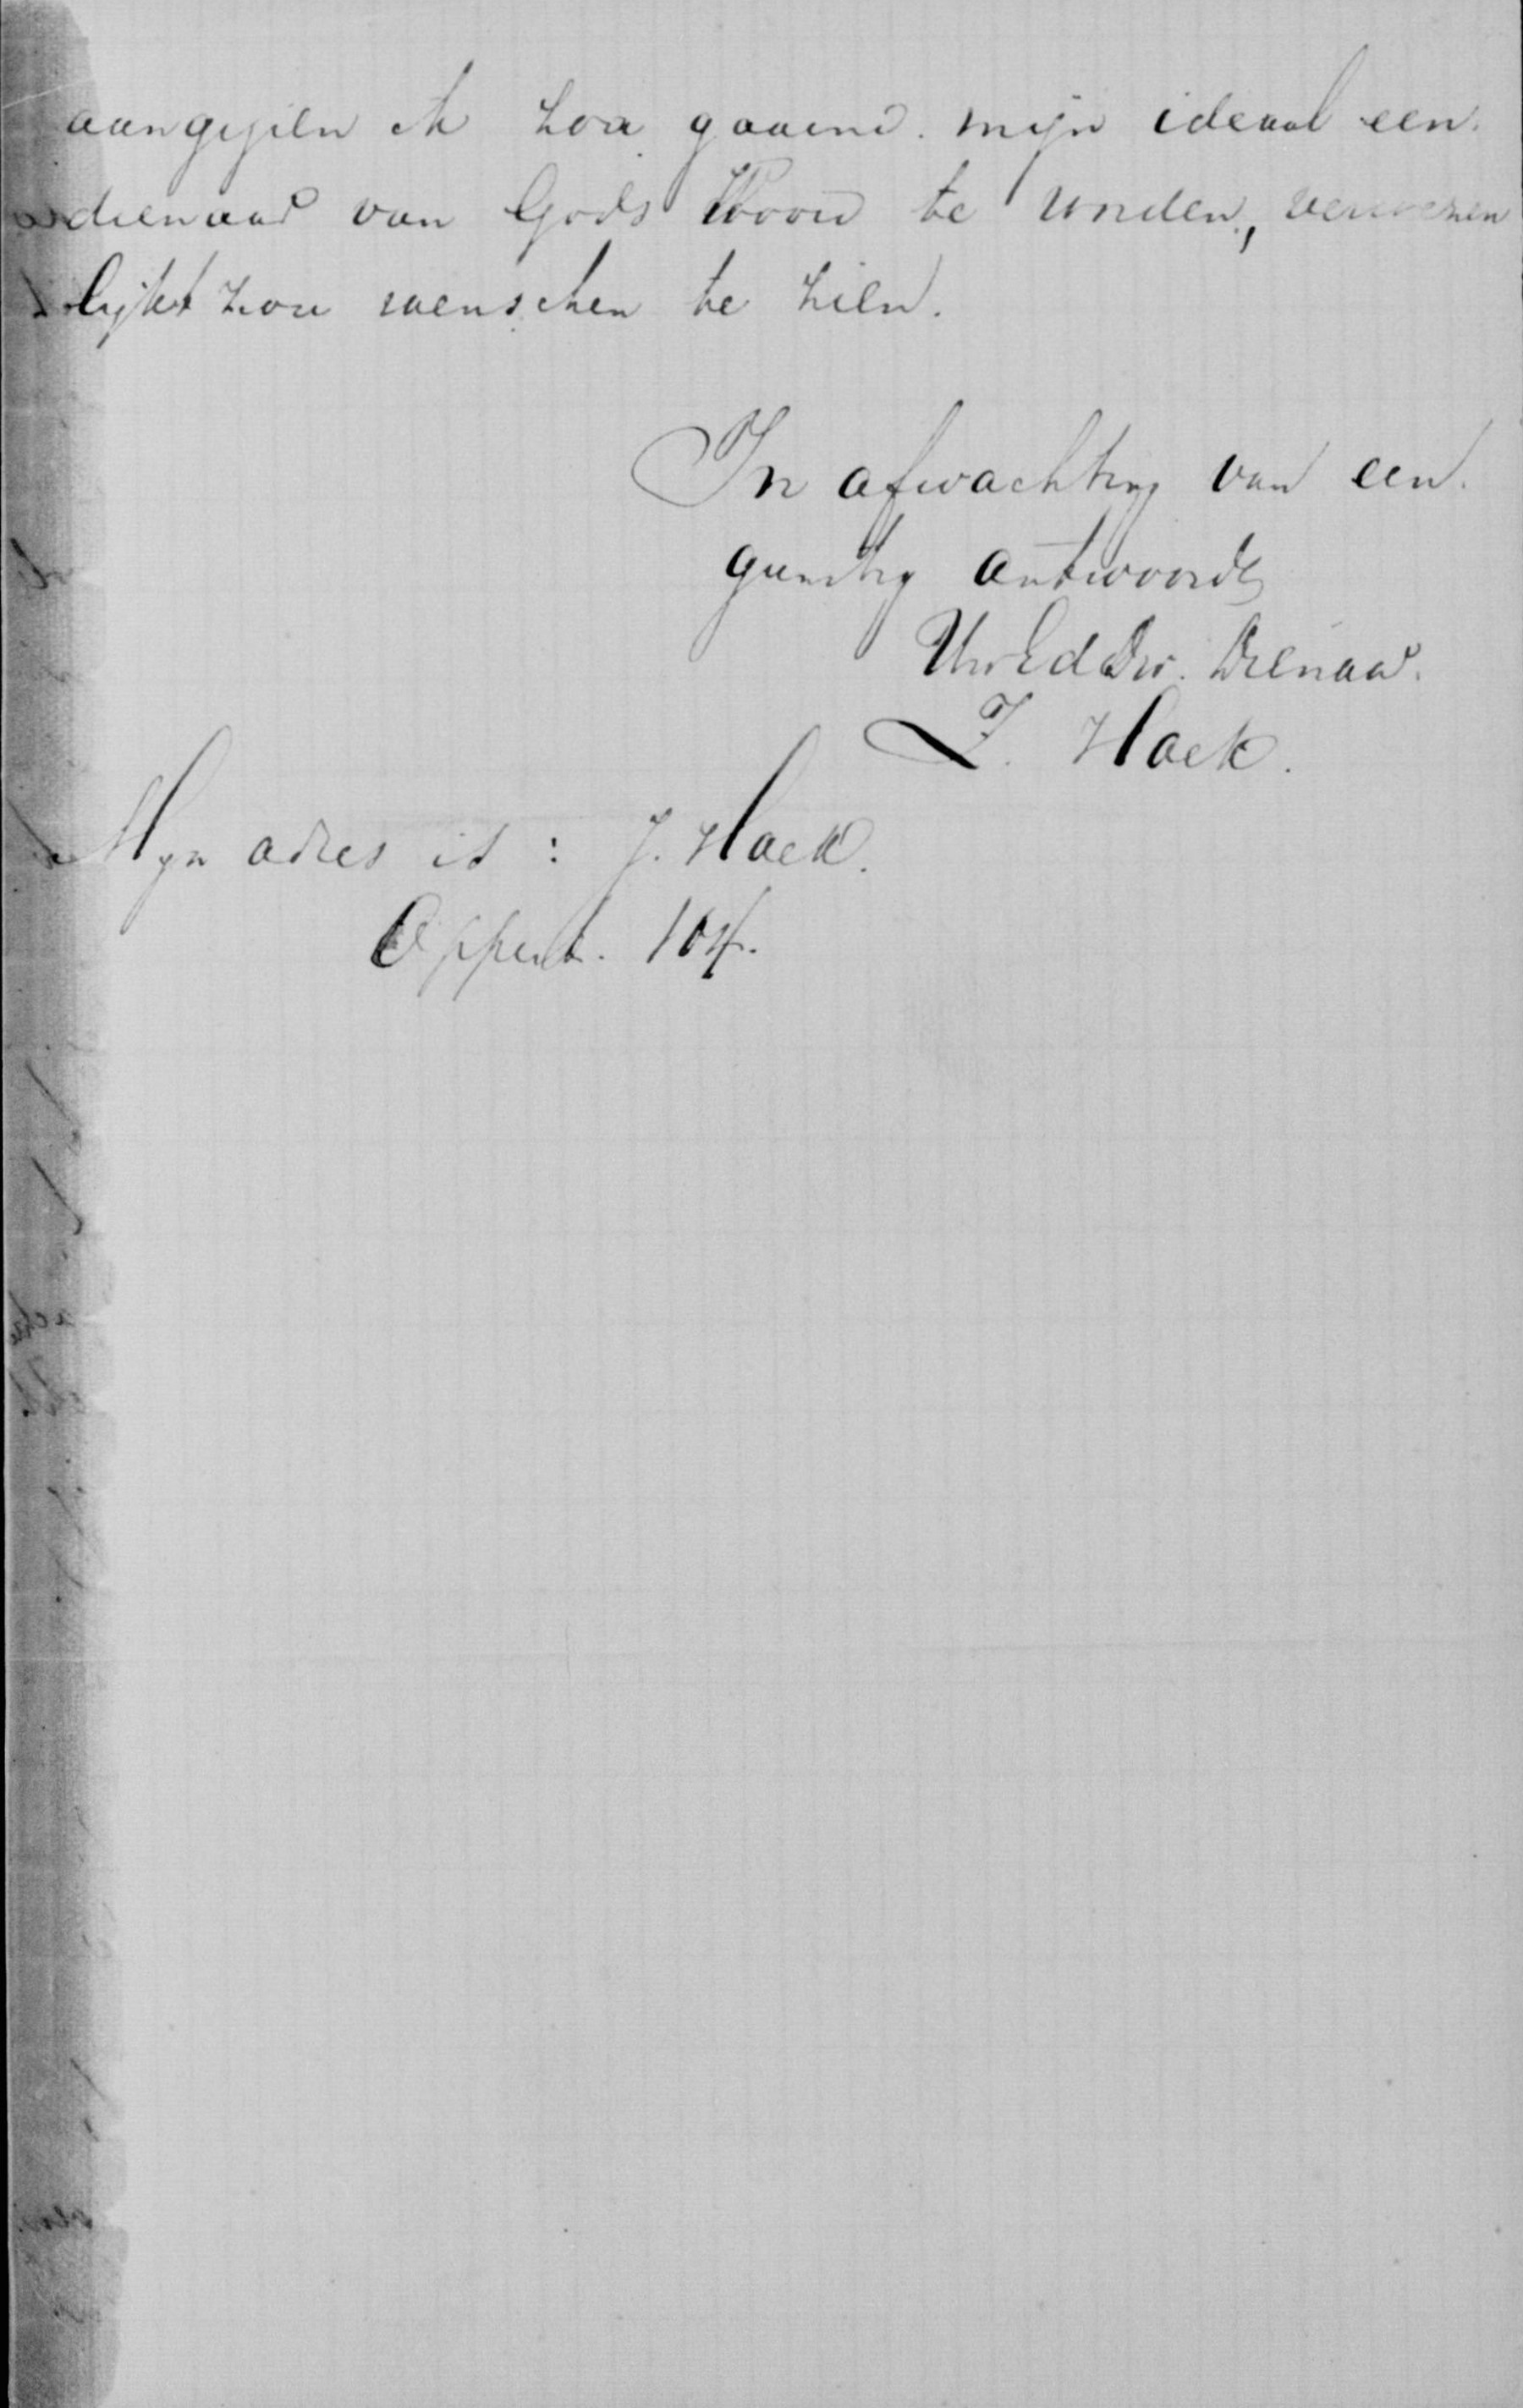 aangezien ik zoo gaarne mijn ideaal een
dienaar van Gods Woord te worden, verwezen
lijkt zou wenschen te zien.
In afwachting van een
gunstig antwoord
Uw Ed Dw. Dienaar.
J. Hoek.
Mijn adres is: J. Hoek.
Oppert. 104.